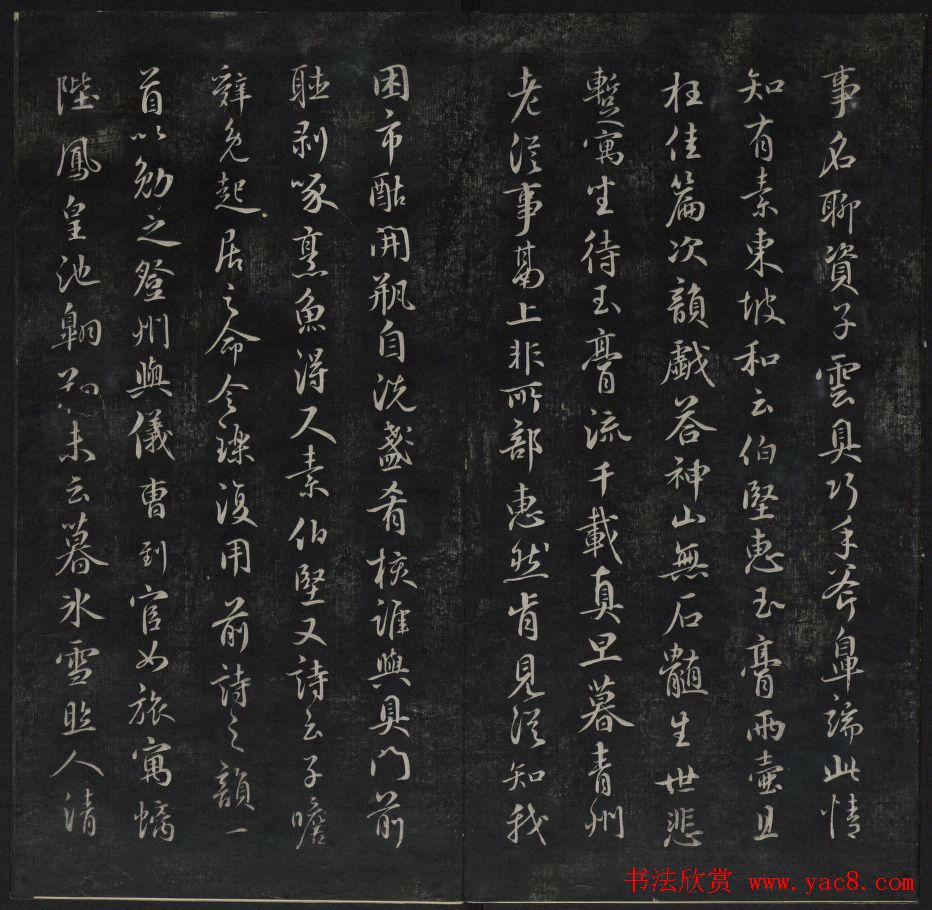 事名聊資子雲具巧手斧鼻端此情
知有素東坡和云伯堅惠玉膏兩壺且
枉佳篇次韻戲答神山無石髓生世悲
暫寓坐待玉膏流千載真旦暮青州
老從事鬲上非所部惠然肯見從知我
困市酤開瓶自洗盞肴核誰與具門前
聽剝啄烹魚得尺素伯堅又詩云子瞻
辭免起居之命令璪復用前詩之韻一
首以勉之登州與儀曹到官如旅寓螭
陛鳳皇池翱翔未云暮冰雪照人清
书法欣赏 www.yac8.com